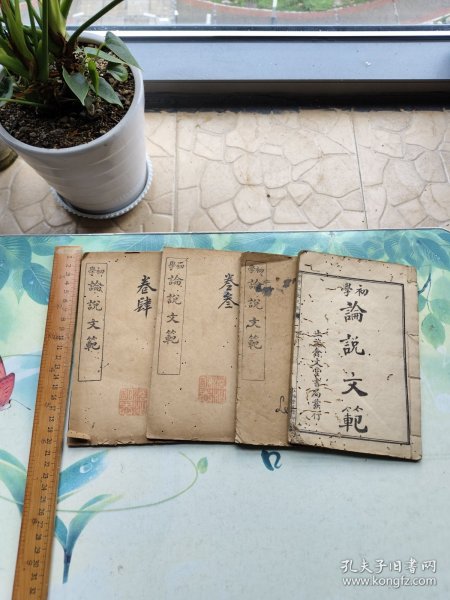 初學
論說文範
卷肆
初學
論說文範
卷叁
初學
論說文範
初學
論說文範
上海會文堂書局發行
孔夫子旧书网
www.kongfz.com